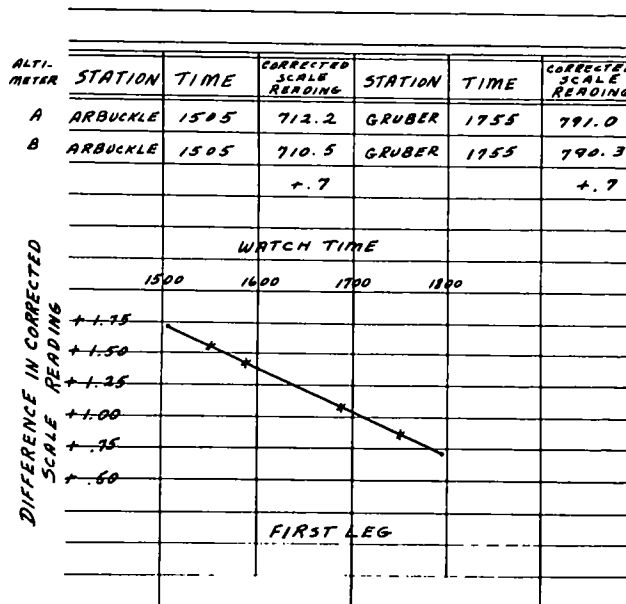 ALTI- METER STATION TIME CORRECTED SCALE READING STATION TIME CORRECTED SCALE READING
A ARBUCKLE 1505 712.2 GRUBER 1755 791.0
B ARBUCKLE 1505 710.5 GRUBER 1755 790.3
+.7 +.7
WATCH TIME
1500 1600 1700 1800
DIFFERENCE IN CORRECTED SCALE READING
+1.75
+1.50
+1.25
+1.00
+.75
+.50
FIRST LEG